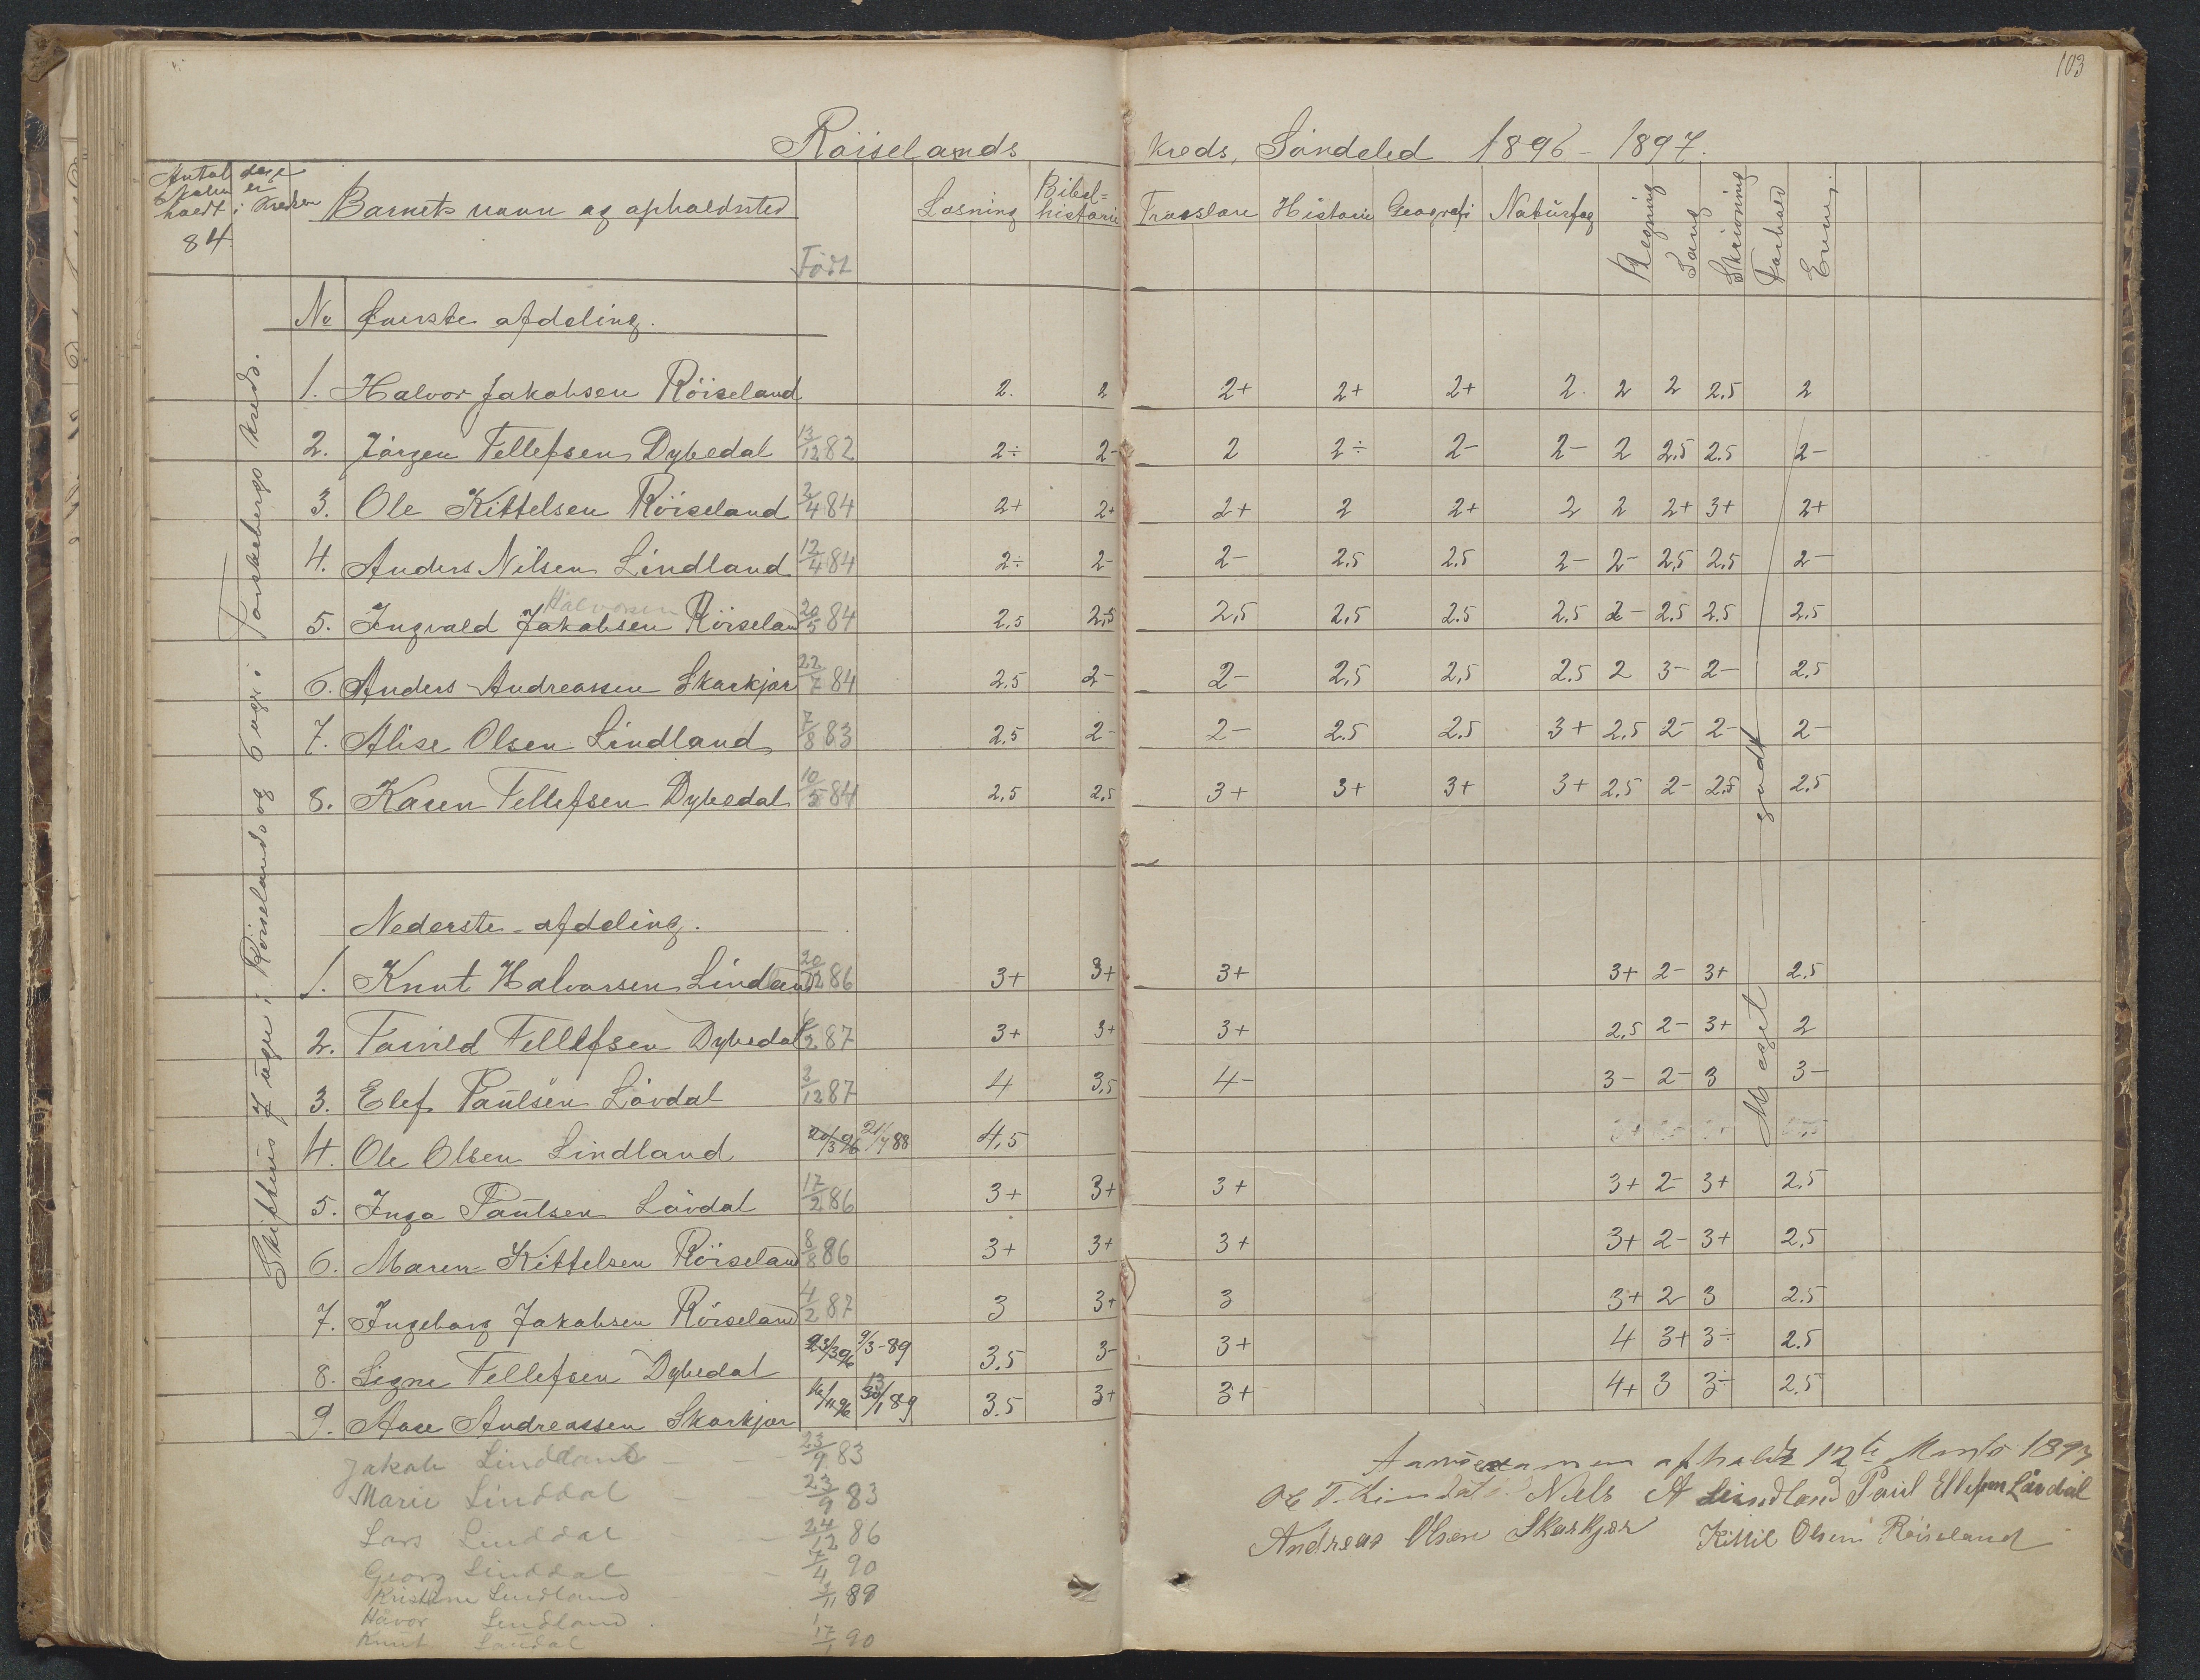 103
Röiselands kreds, Söndeled 1896 - 1897.
Antal dage skolen er holdt i kredsen
84
Barnets navn og opholdsted
Födt
Læsning Bibel= historie Troeslære Historie Geografi Naturfag Regning Sang Skrivning Forhold Evner
Skiftevis 7 uger i Röiselands og 6 uger i kreds.
No Överste afdeling.
1. Halvor Jakobsen Röiseland 2. 2 2+ 2+ 2+ 2. 2 2 2.5 2
2. Jörgen Tellefsen Dybedal 13/12 82 2÷ 2- 2 2÷ 2- 2- 2 2.5 2.5 2-
3. Ole Kittelsen Röiseland 2/4 84 2+ 2+ 2+ 2 2+ 2 2 2+ 3+ 2+
4. Anders Nilsen Lindland 12/4 84 2÷ 2- 2- 2.5 2.5 2- 2- 2.5 2.5 2-
Halvorsen
5. Ingvald Jakobsen Röiseland 20/5 84 2,5 2,5 2,5 2,5 2.5 2.5 2- 2.5 2.5 2.5
6. Anders Andreassen Skarkjær 22/7 84 2,5 2- 2- 2,5 2,5 2.5 2 3- 2- 2.5
7. Alise Olsen Lindland 7/8 83 2,5 2- 2- 2.5 2.5 3+ 2.5 2- 2- 2-
8. Karen Tellefsen Dybedal 10/5 84 2,5 2,5 3+ 3+ 3+ 3+ 2.5 2- 2.5 2.5
Meget godt
Nederste afdeling.
1. Knut Halvorsen Lindland 20/12 86 3+ 3+ 3+ 3+ 2- 3+ 2.5
2. Torvild Tellefsen Dybedal 87 3+ 3+ 3+ 2.5 2- 3+ 2
3. Elef Paulsen Lövdal 3/12 87 4 3,5 4- 3- 2- 3 3-
4. Ole Olsen Lindland 20/3 96 88 4,5
5. Inga Paulsen Lövdal 17/2 86 3+ 3+ 3+ 3+ 2- 3+ 2.5
6. Maren Kittelsen Röiseland 8/8 86 3+ 3+ 3+ 3+ 2- 3+ 2.5
7. Ingeborg Jakobsen Röiseland 4/2 87 3 3+ 3 3+ 2 3 2.5
8. Signe Tellefsen Dybedal 23/3 96 9/3-89 3.5 3- 3+ 4 3+ 3÷ 2.5
9. Aase Andreassen Skarkjær 16/11 96 89 3.5 3+ 3+ 4+ 3 3÷ 2.5
Jakob Linddal 23/9 83
Marie Linddal 23/9 83
Lars Linddal 24/12 86
Georg Linddal 7/4 90
Kristine Lindland 3/11 89
Håvor Lindland
Knut Laudal 17/1 90
Aarsexamen afholdt 12te Marts 1897
Niels A Lindland Paul Ellefsen Lövdal
Andreas Olsen Skarkjær Kittil Olsen Röiseland